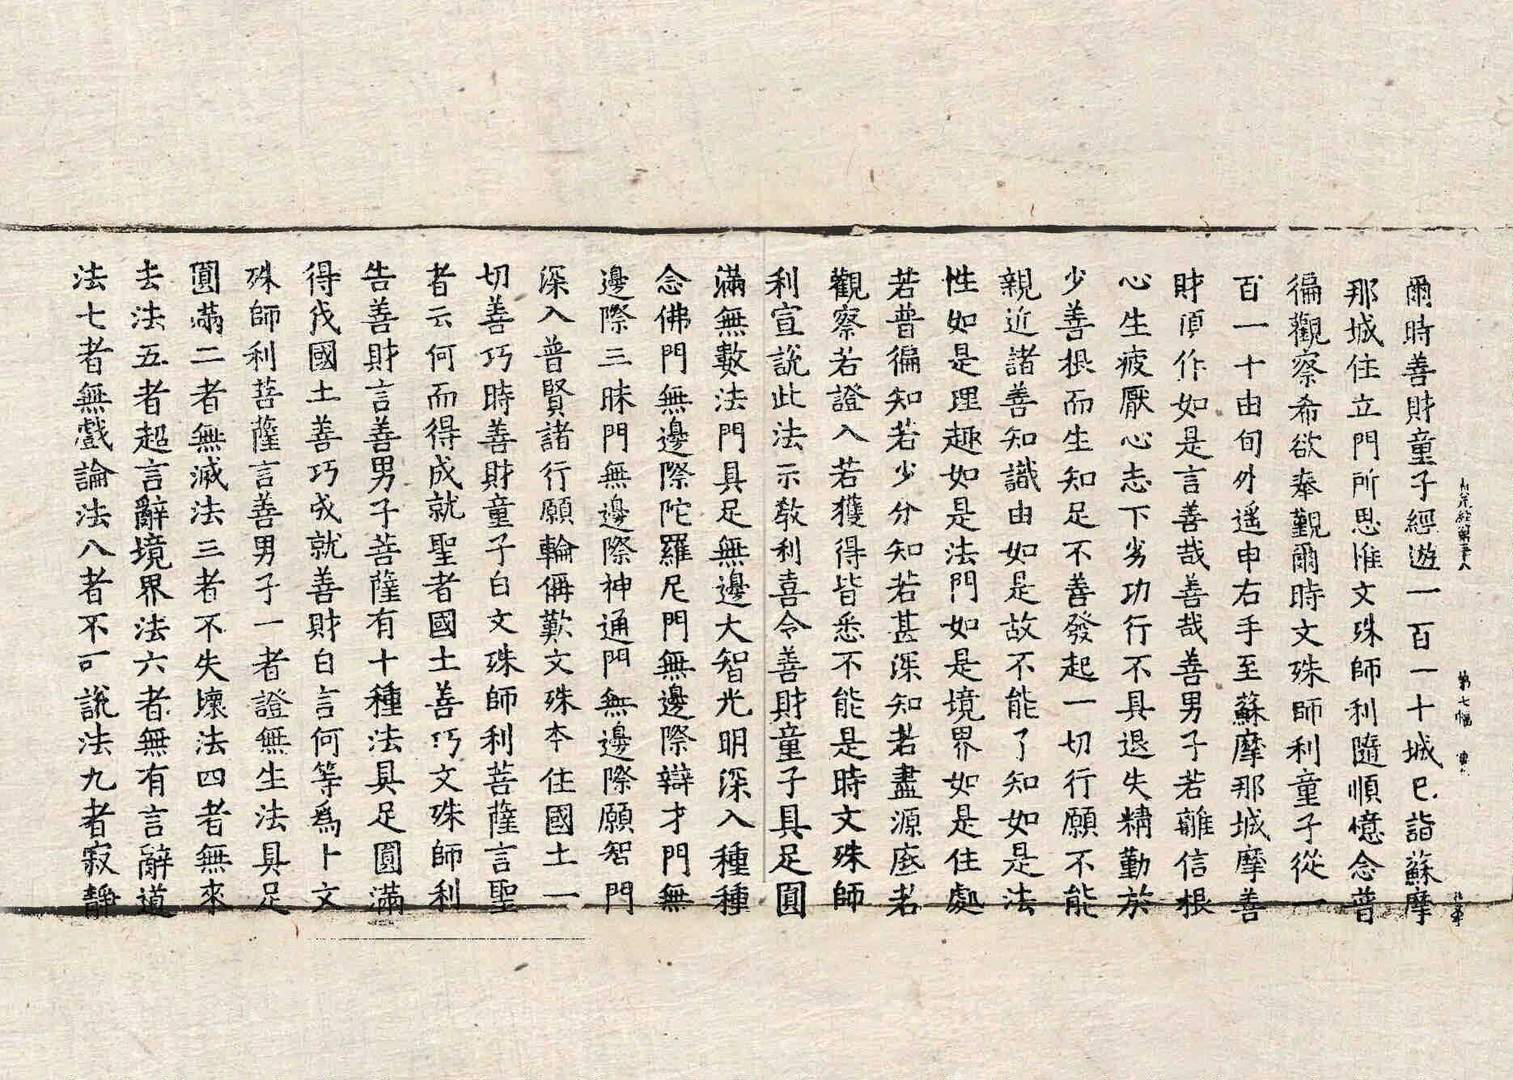 第七幅
爾時善財童子經遊一百一十城已詣蘇摩
那城住立門所思惟文殊師利隨順憶念普
徧觀察希欲奉覲爾時文殊師利童子從一
百一十由旬外遥申右手至蘇摩那城摩善
財頂作如是言善哉善哉善男子若離信根
心生疲厭心志下劣功行不具退失精勤於
少善根而生知足不善發起一切行願不能
親近諸善知識由如是故不能了知如是法
性如是理趣如是法門如是境界如是住處
若普徧知若少分知若甚深知若盡源底若
觀察若證入若獲得皆悉不能是時文殊師
利宣說此法示教利喜令善財童子具足圓
滿無數法門具足無邊大智光明深入種種
念佛門無邊際陀羅尼門無邊際辯才門無
邊際三昧門無邊際神通門無邊際願智門
深入普賢諸行願輪偁歎文殊本住國土一
切善巧時善財童子白文殊師利菩薩言聖
者云何而得成就聖者國土善巧文殊師利
告善財言善男子菩薩有十種法具足圓滿
得我國土善巧成就善財白言何等爲十文
殊師利菩薩言善男子一者證無生法具足
圓滿二者無滅法三者不失壞法四者無來
去法五者超言辭境界法六者無有言辭道
法七者無戲論法八者不可說法九者寂靜